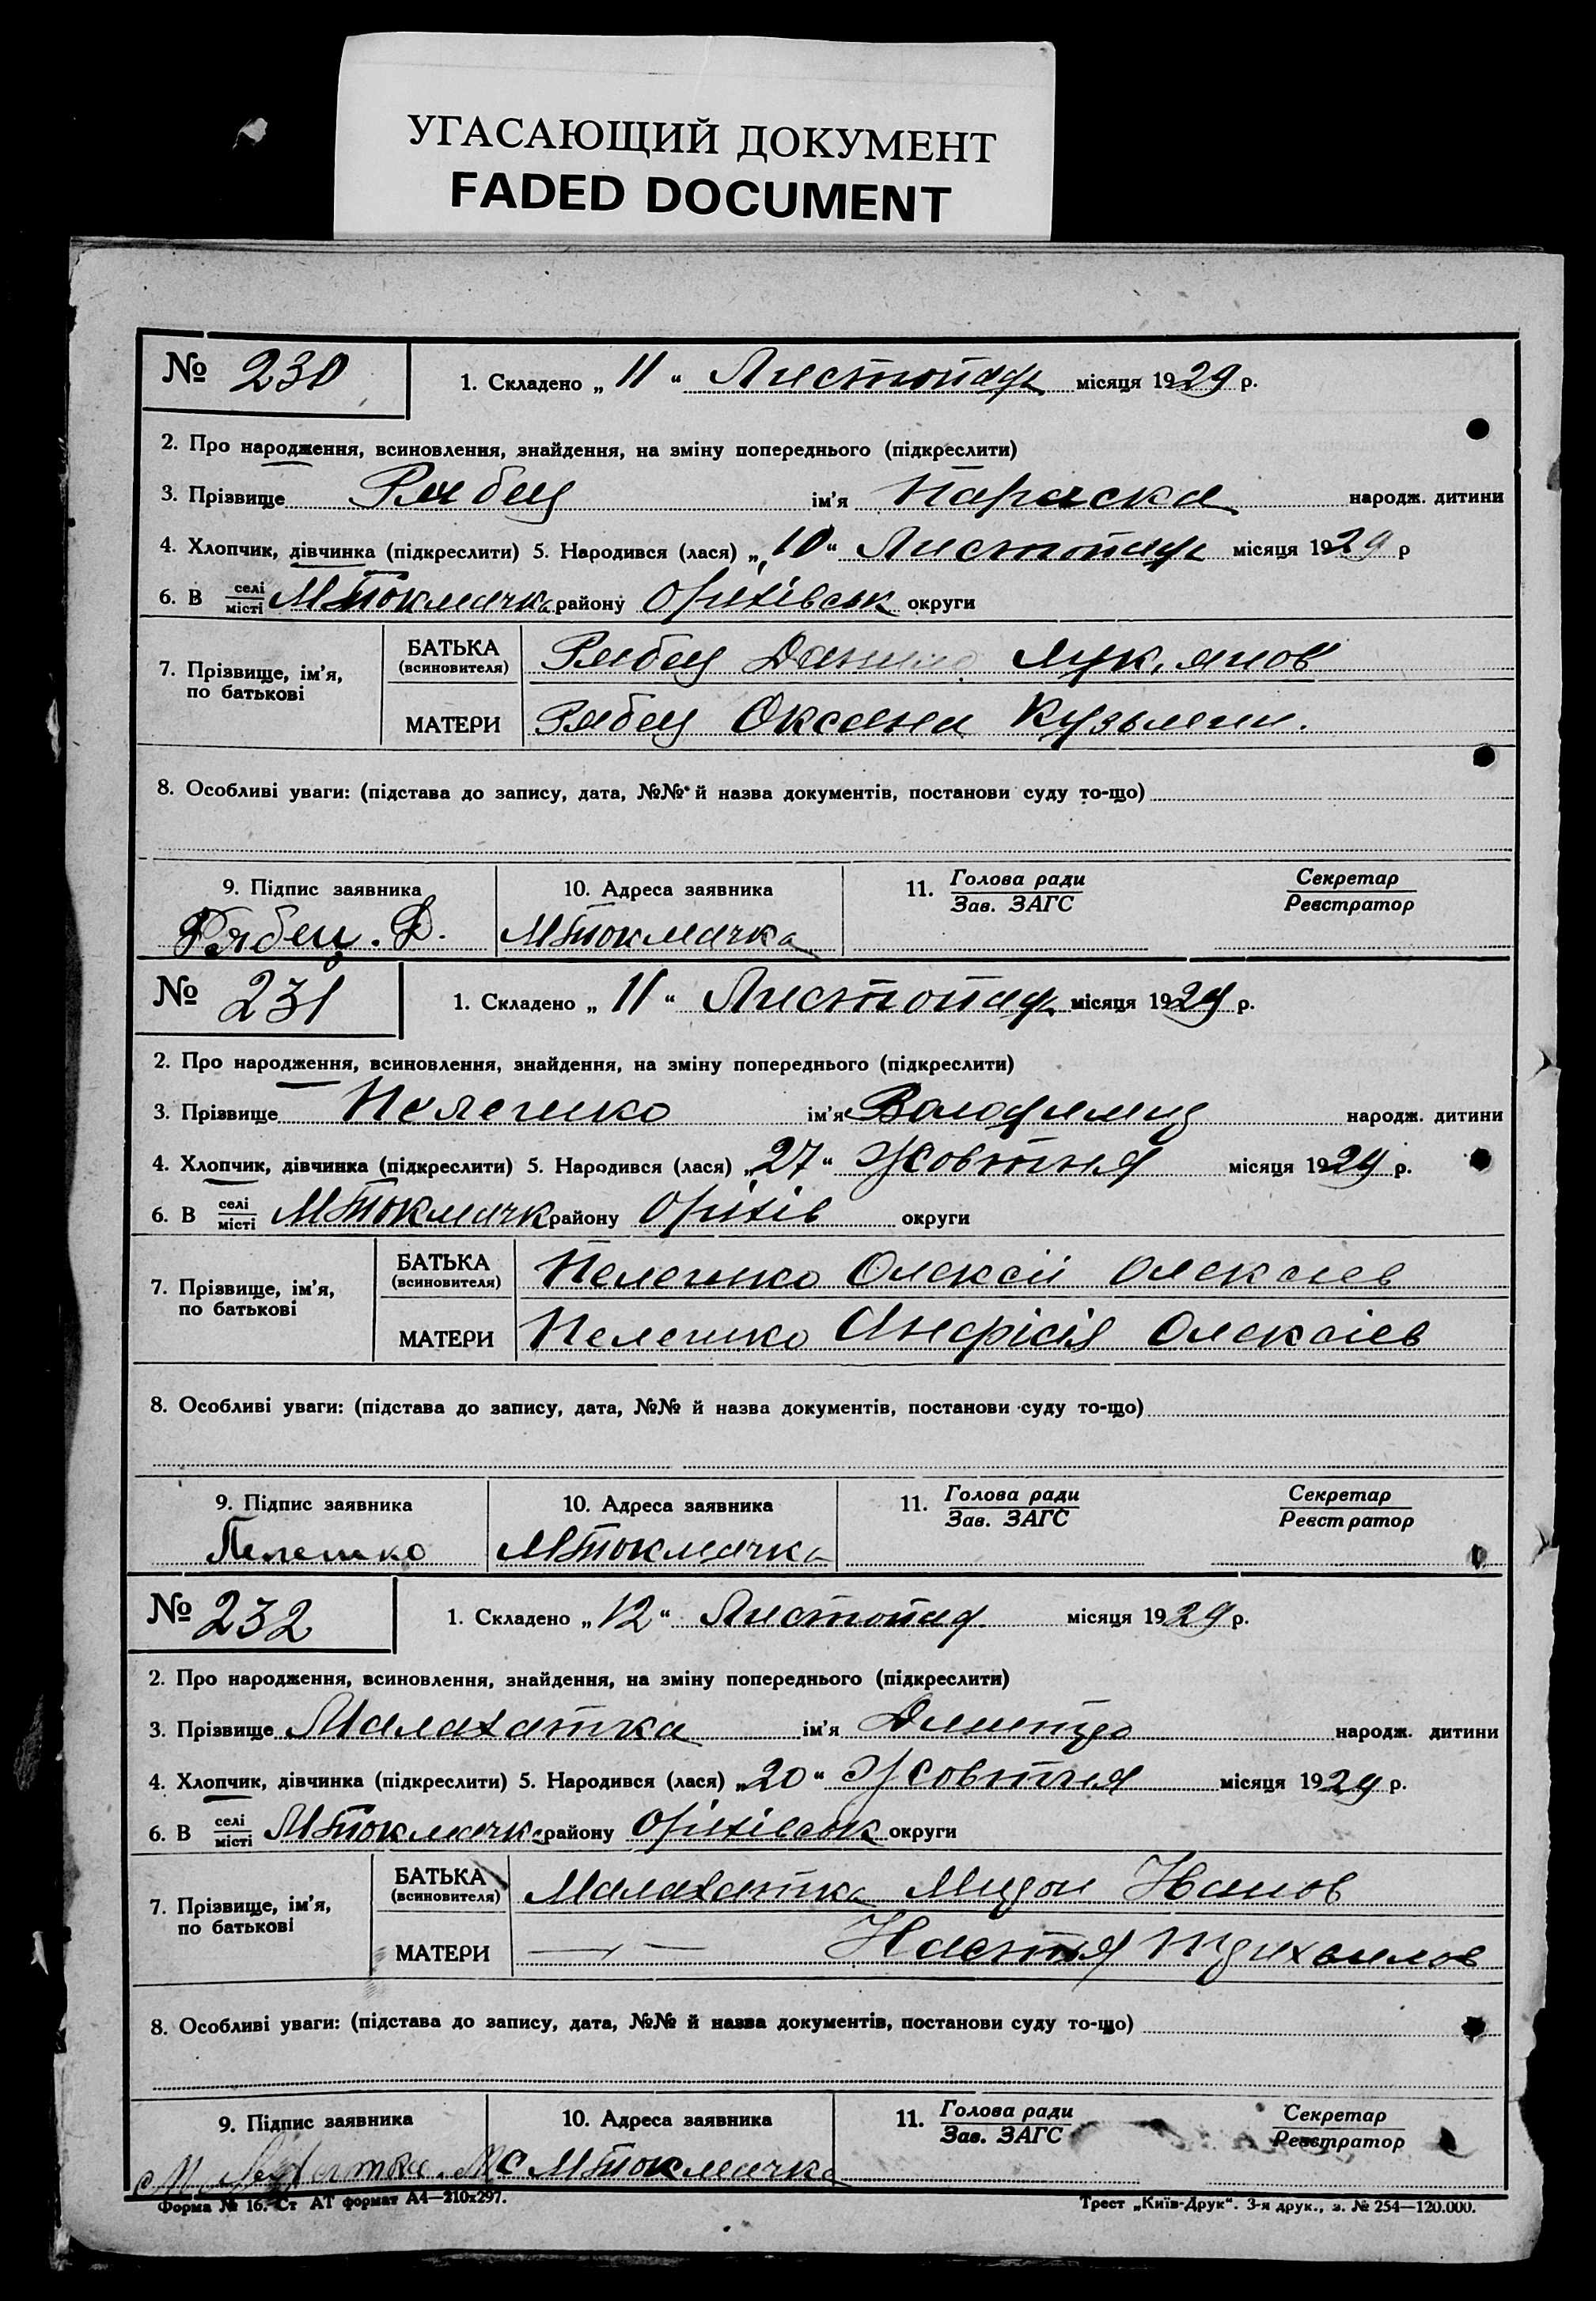 УГАСАЮЩИЙ ДОКУМЕНТ
FADED DOCUMENT
№ 230
1. Складено „ 11 “ Листопад місяця 1929 р.
2. Про народження, всиновлення, знайдення, на зміну попереднього (підкреслити)
3. Прізвище Рябец ім’я Параска народж. дитини
4. Хлопчик, дівчинка (підкреслити) 5. Народився (лася) „ 10 “ Листопад місяця 1929 р
6. В селі/місті МТокмачка району Оріхівськ округи
7. Прізвище, ім’я, по батькові
БАТЬКА (всиновителя) Рябец Данило Лук,янов
МАТЕРИ Рябец Оксана Кузьмин.
8. Особливі уваги: (підстава до запису, дата, №№ й назва документів, постанови суду то-що)
9. Підпис заявника 10. Адреса заявника 11. Голова ради/Зав. ЗАГС Секретар/Реєстратор
Рябец. Д. МТокмачка
№ 231
1. Складено „ 11 “ Листопад місяця 1929 р.
2. Про народження, всиновлення, знайдення, на зміну попереднього (підкреслити)
3. Прізвище Пелешко ім’я Володимир народж. дитини
4. Хлопчик, дівчинка (підкреслити) 5. Народився (лася) „ 27 “ Жовтня місяця 1929 р.
6. В селі/місті МТокмачк району Оріхів округи
7. Прізвище, ім’я, по батькові
БАТЬКА (всиновителя) Пелешко Олексій Олексіев
МАТЕРИ Пелешко Олексіев
8. Особливі уваги: (підстава до запису, дата, №№ й назва документів, постанови суду то-що)
9. Підпис заявника 10. Адреса заявника 11. Голова ради/Зав. ЗАГС Секретар/Реєстратор
Пелешко МТокмачка
№ 232
1. Складено „ 12 “ Листопад. місяця 1929 р.
2. Про народження, всиновлення, знайдення, на зміну попереднього (підкреслити)
3. Прізвище Малахатка ім’я Дмитро народж. дитини
4. Хлопчик, дівчинка (підкреслити) 5. Народився (лася) „ 20 “ Жовтня місяця 1929 р.
6. В селі/місті МТокмачка району Оріхівськ округи
7. Прізвище, ім’я, по батькові
БАТЬКА (всиновителя) Малахатка Мирон
МАТЕРИ —〃— Настя
8. Особливі уваги: (підстава до запису, дата, №№ й назва документів, постанови суду то-що)
9. Підпис заявника 10. Адреса заявника 11. Голова ради/Зав. ЗАГС Секретар/Реєстратор
с МТокмачка
Форма № 16. Ст АТ формат А4—210х297.
Трест „Київ-Друк“. 3-я друк., з. № 254—120.000.